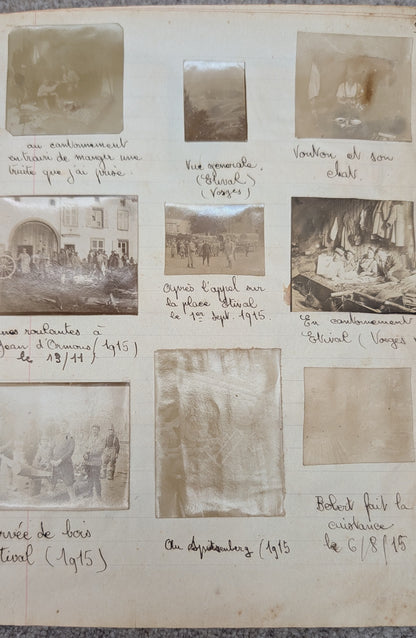 au cantonnement
en train de manger une
truite que j'ai prise.
Vue generale.
(Etival)
(Vosges)
Vonvon et son
chat.
nes roulantes à
Jean d'Ormons (1915)
le 13/11)
Après l'appel sur
la place Etival
le 1er sept. 1915.
En cantonnement
Etival (Vosges
rvée de bois
tival (1915)
Au Spitzemberg (1915
Bebert fait la
cuistance
le 6/8/15